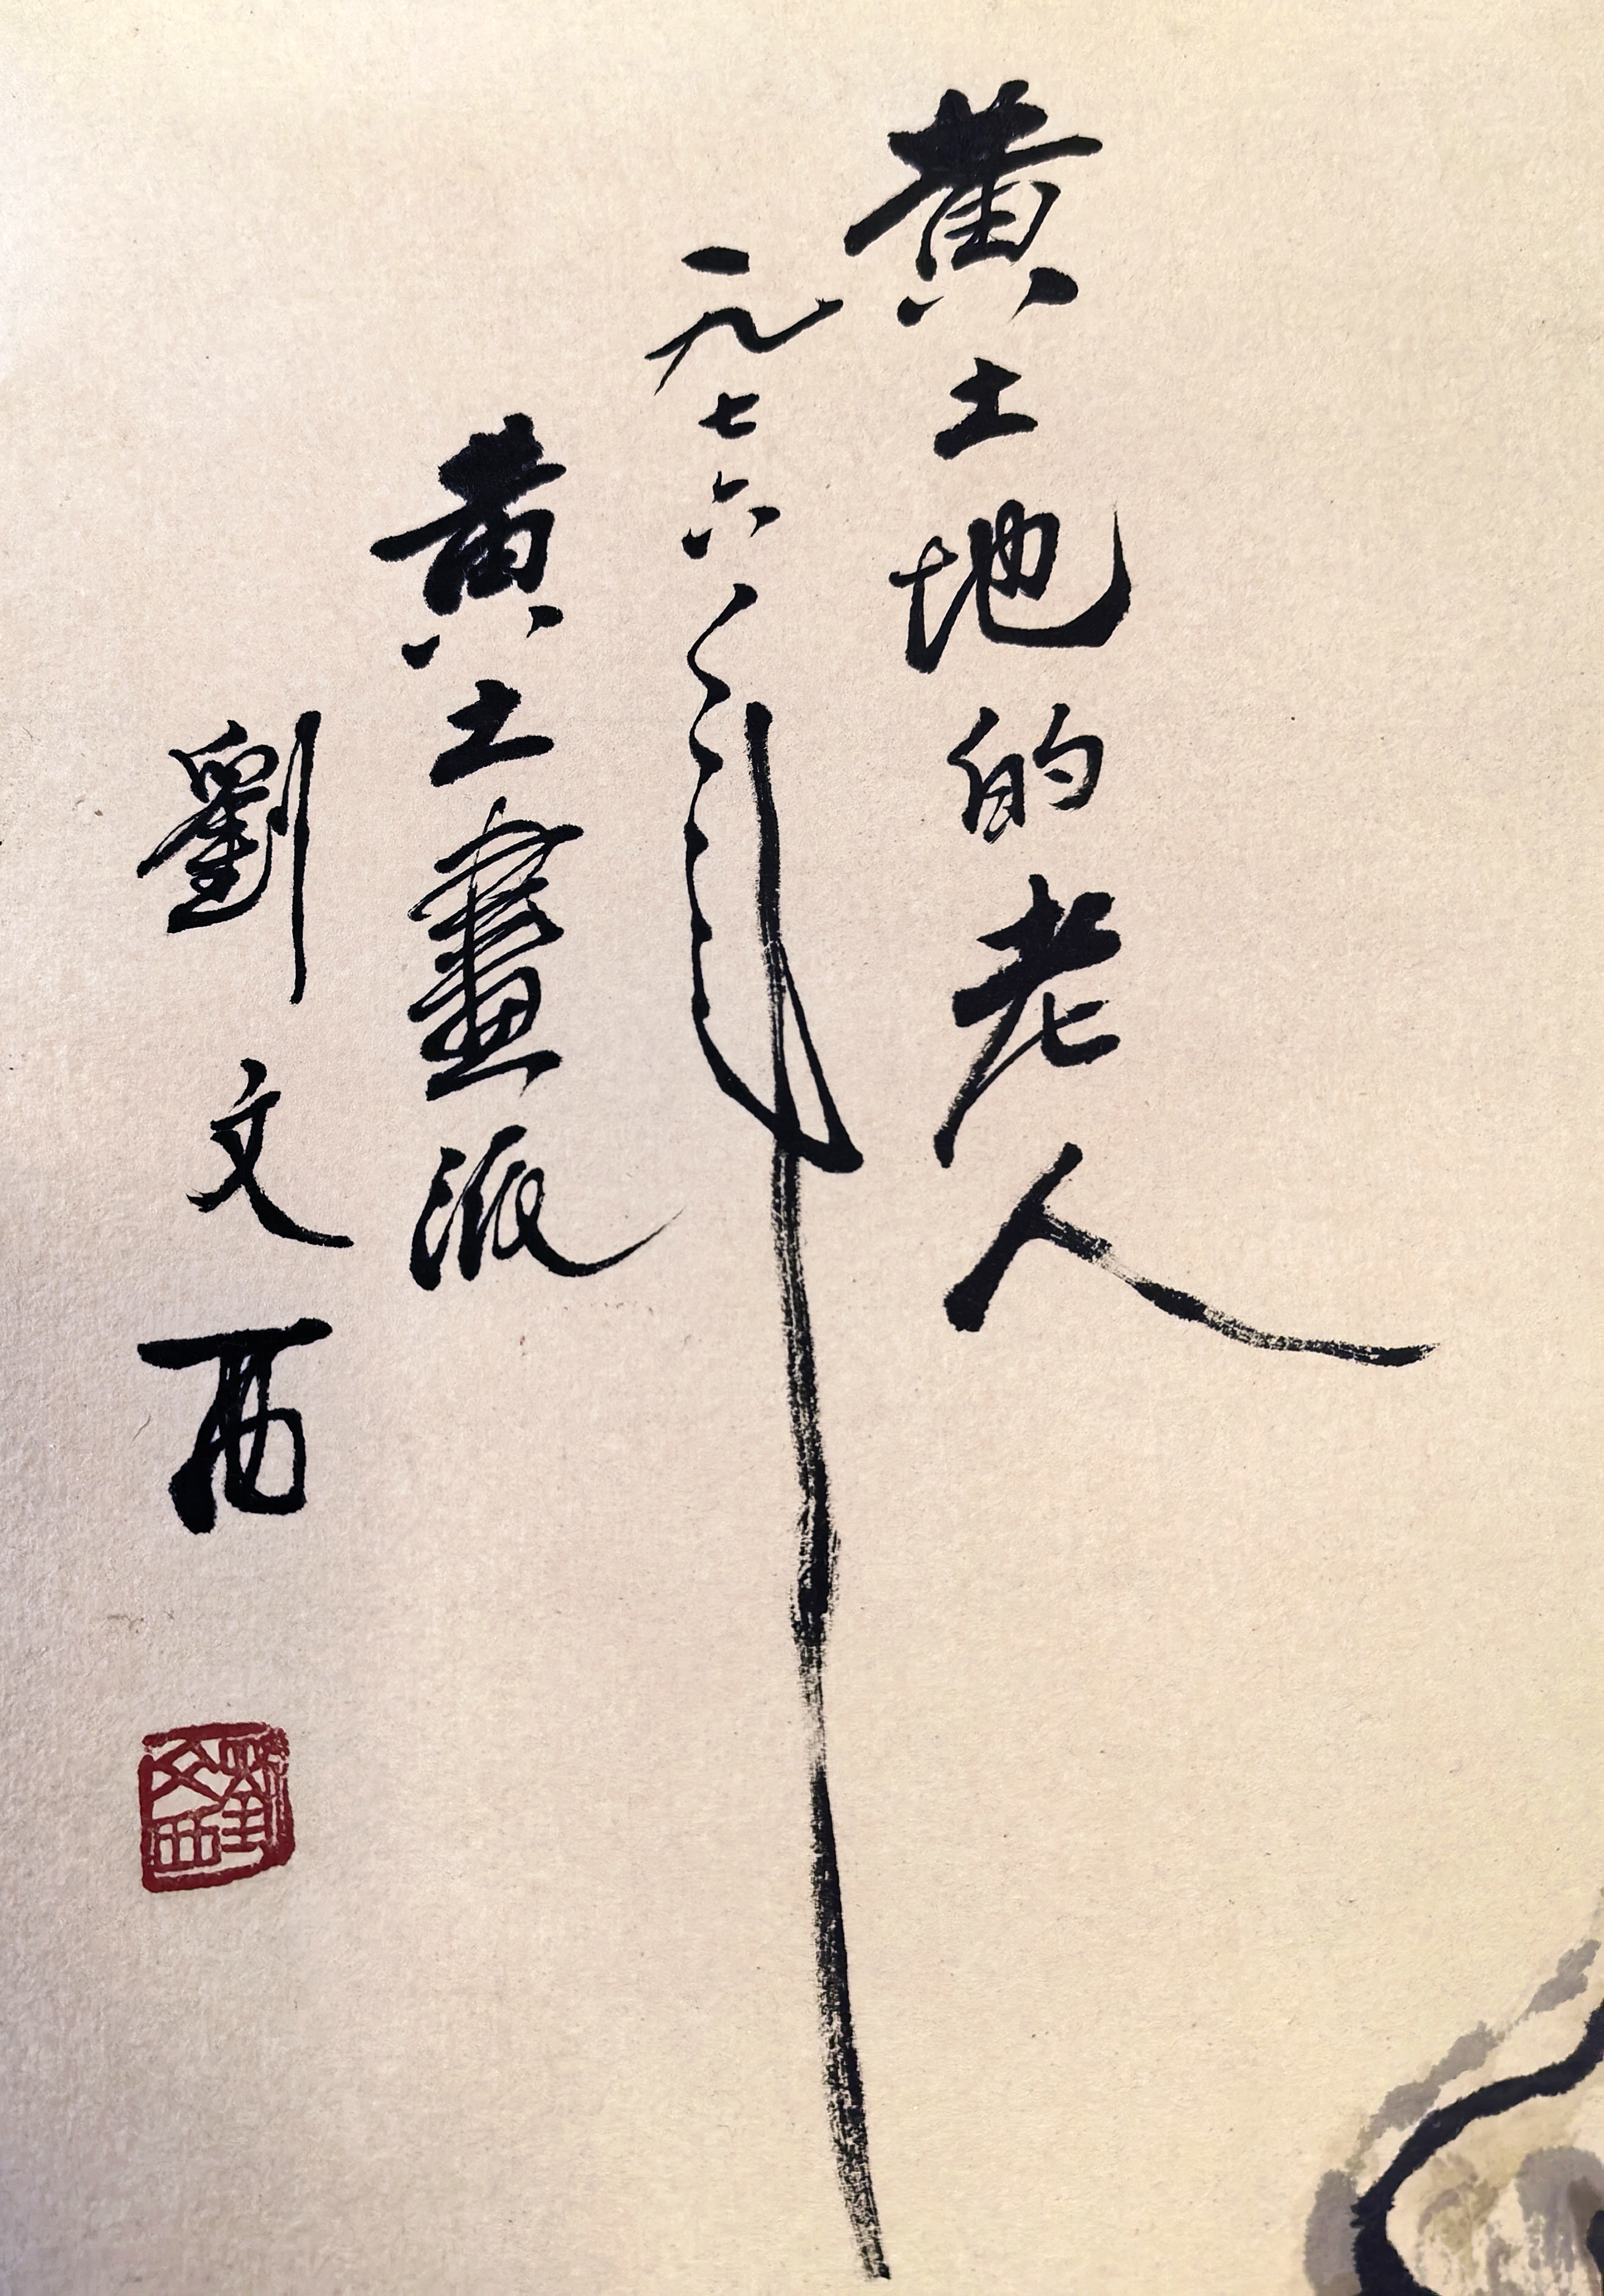 黄土地的老人
一九七六年
黄土畫派
劉文西
劉文西